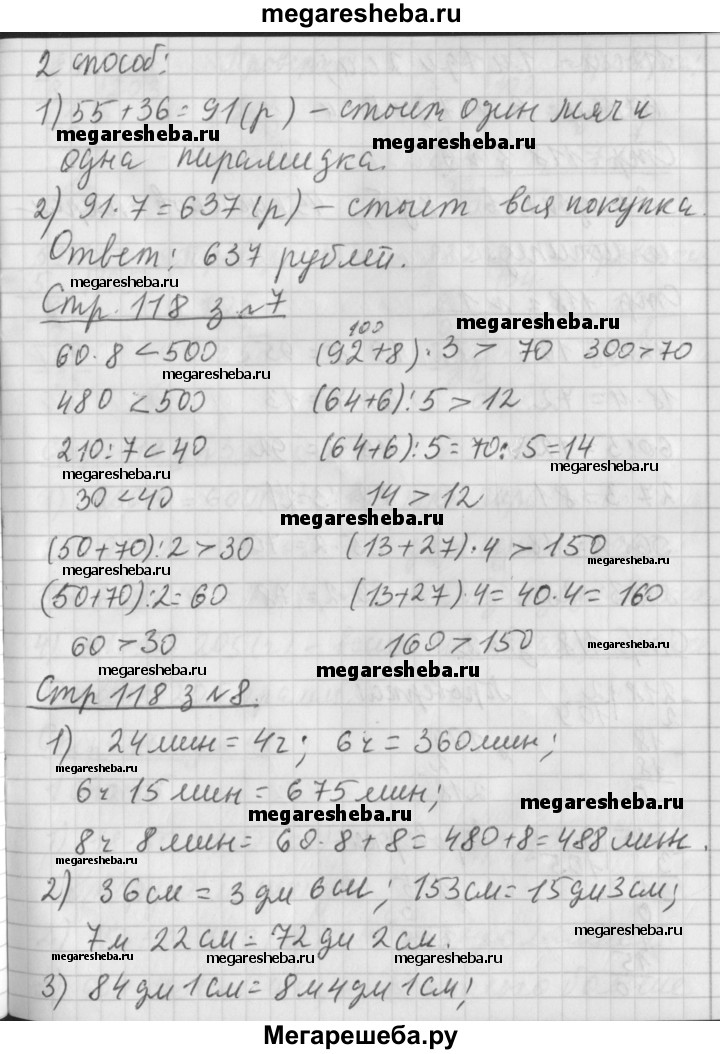 megaresheba.ru
2 способ:
1) 55+36=91(р) – стоит один мяч и
megaresheba.ru megaresheba.ru
одна пирамидка.
2) 91·7=637(р) – стоит вся покупка.
Ответ: 637 рублей.
megaresheba.ru megaresheba.ru
Стр. 118 з №7
megaresheba.ru
100
60·8<500 (92+8)·3 > 70 300>70
megaresheba.ru
480<500 (64+6):5>12
210:7<40 (64+6):5=70:5=14
megaresheba.ru megaresheba.ru
30<40 14>12
megaresheba.ru
(50+70):2>30 (13+27)·4>150
megaresheba.ru megaresheba.ru
(50+70):2=60 (13+27)·4=40·4=160
60>30 160>150
megaresheba.ru
megaresheba.ru megaresheba.ru
Стр 118 з №8.
1) 24мин=4г; 6ч=360мин;
megaresheba.ru
6ч 15мин=675мин;
megaresheba.ru megaresheba.ru
8ч 8мин=60·8+8=480+8=488мин.
megaresheba.ru
2) 36см=3дм 6см; 153см=15дм3см;
7м 22см=72дм 2см.
megaresheba.ru
megaresheba.ru megaresheba.ru megaresheba.ru
3) 84дм1см=8м4дм1см;
Мегарешеба.ру